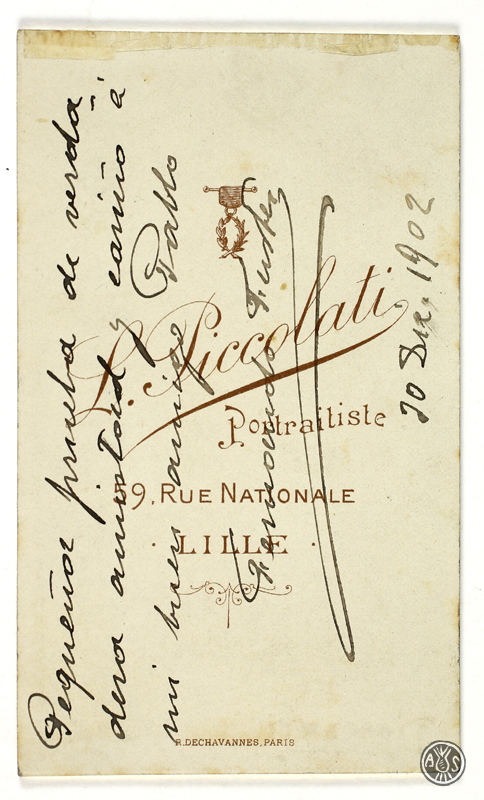 Pequeña prueba de verda-
dera amistad y cariño á
mi buen amigo Pablo
Fernando Fuster
20 Dic. 1902
L. Piccolati
Portraitiste
59, RUE NATIONALE
· LILLE ·
R. DECHAVANNES, PARIS
A S